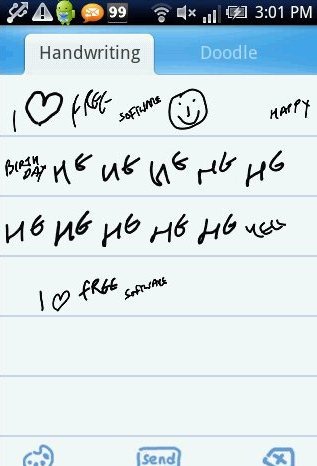 99 3:01 PM
Handwriting Doodle
I ♡ FREE SOFTWARE ☺ HAPPY
BIRTH DAY HG HG HG HG HG
HG HG HG HG HG
I ♡ FREE SOFTWARE
Send